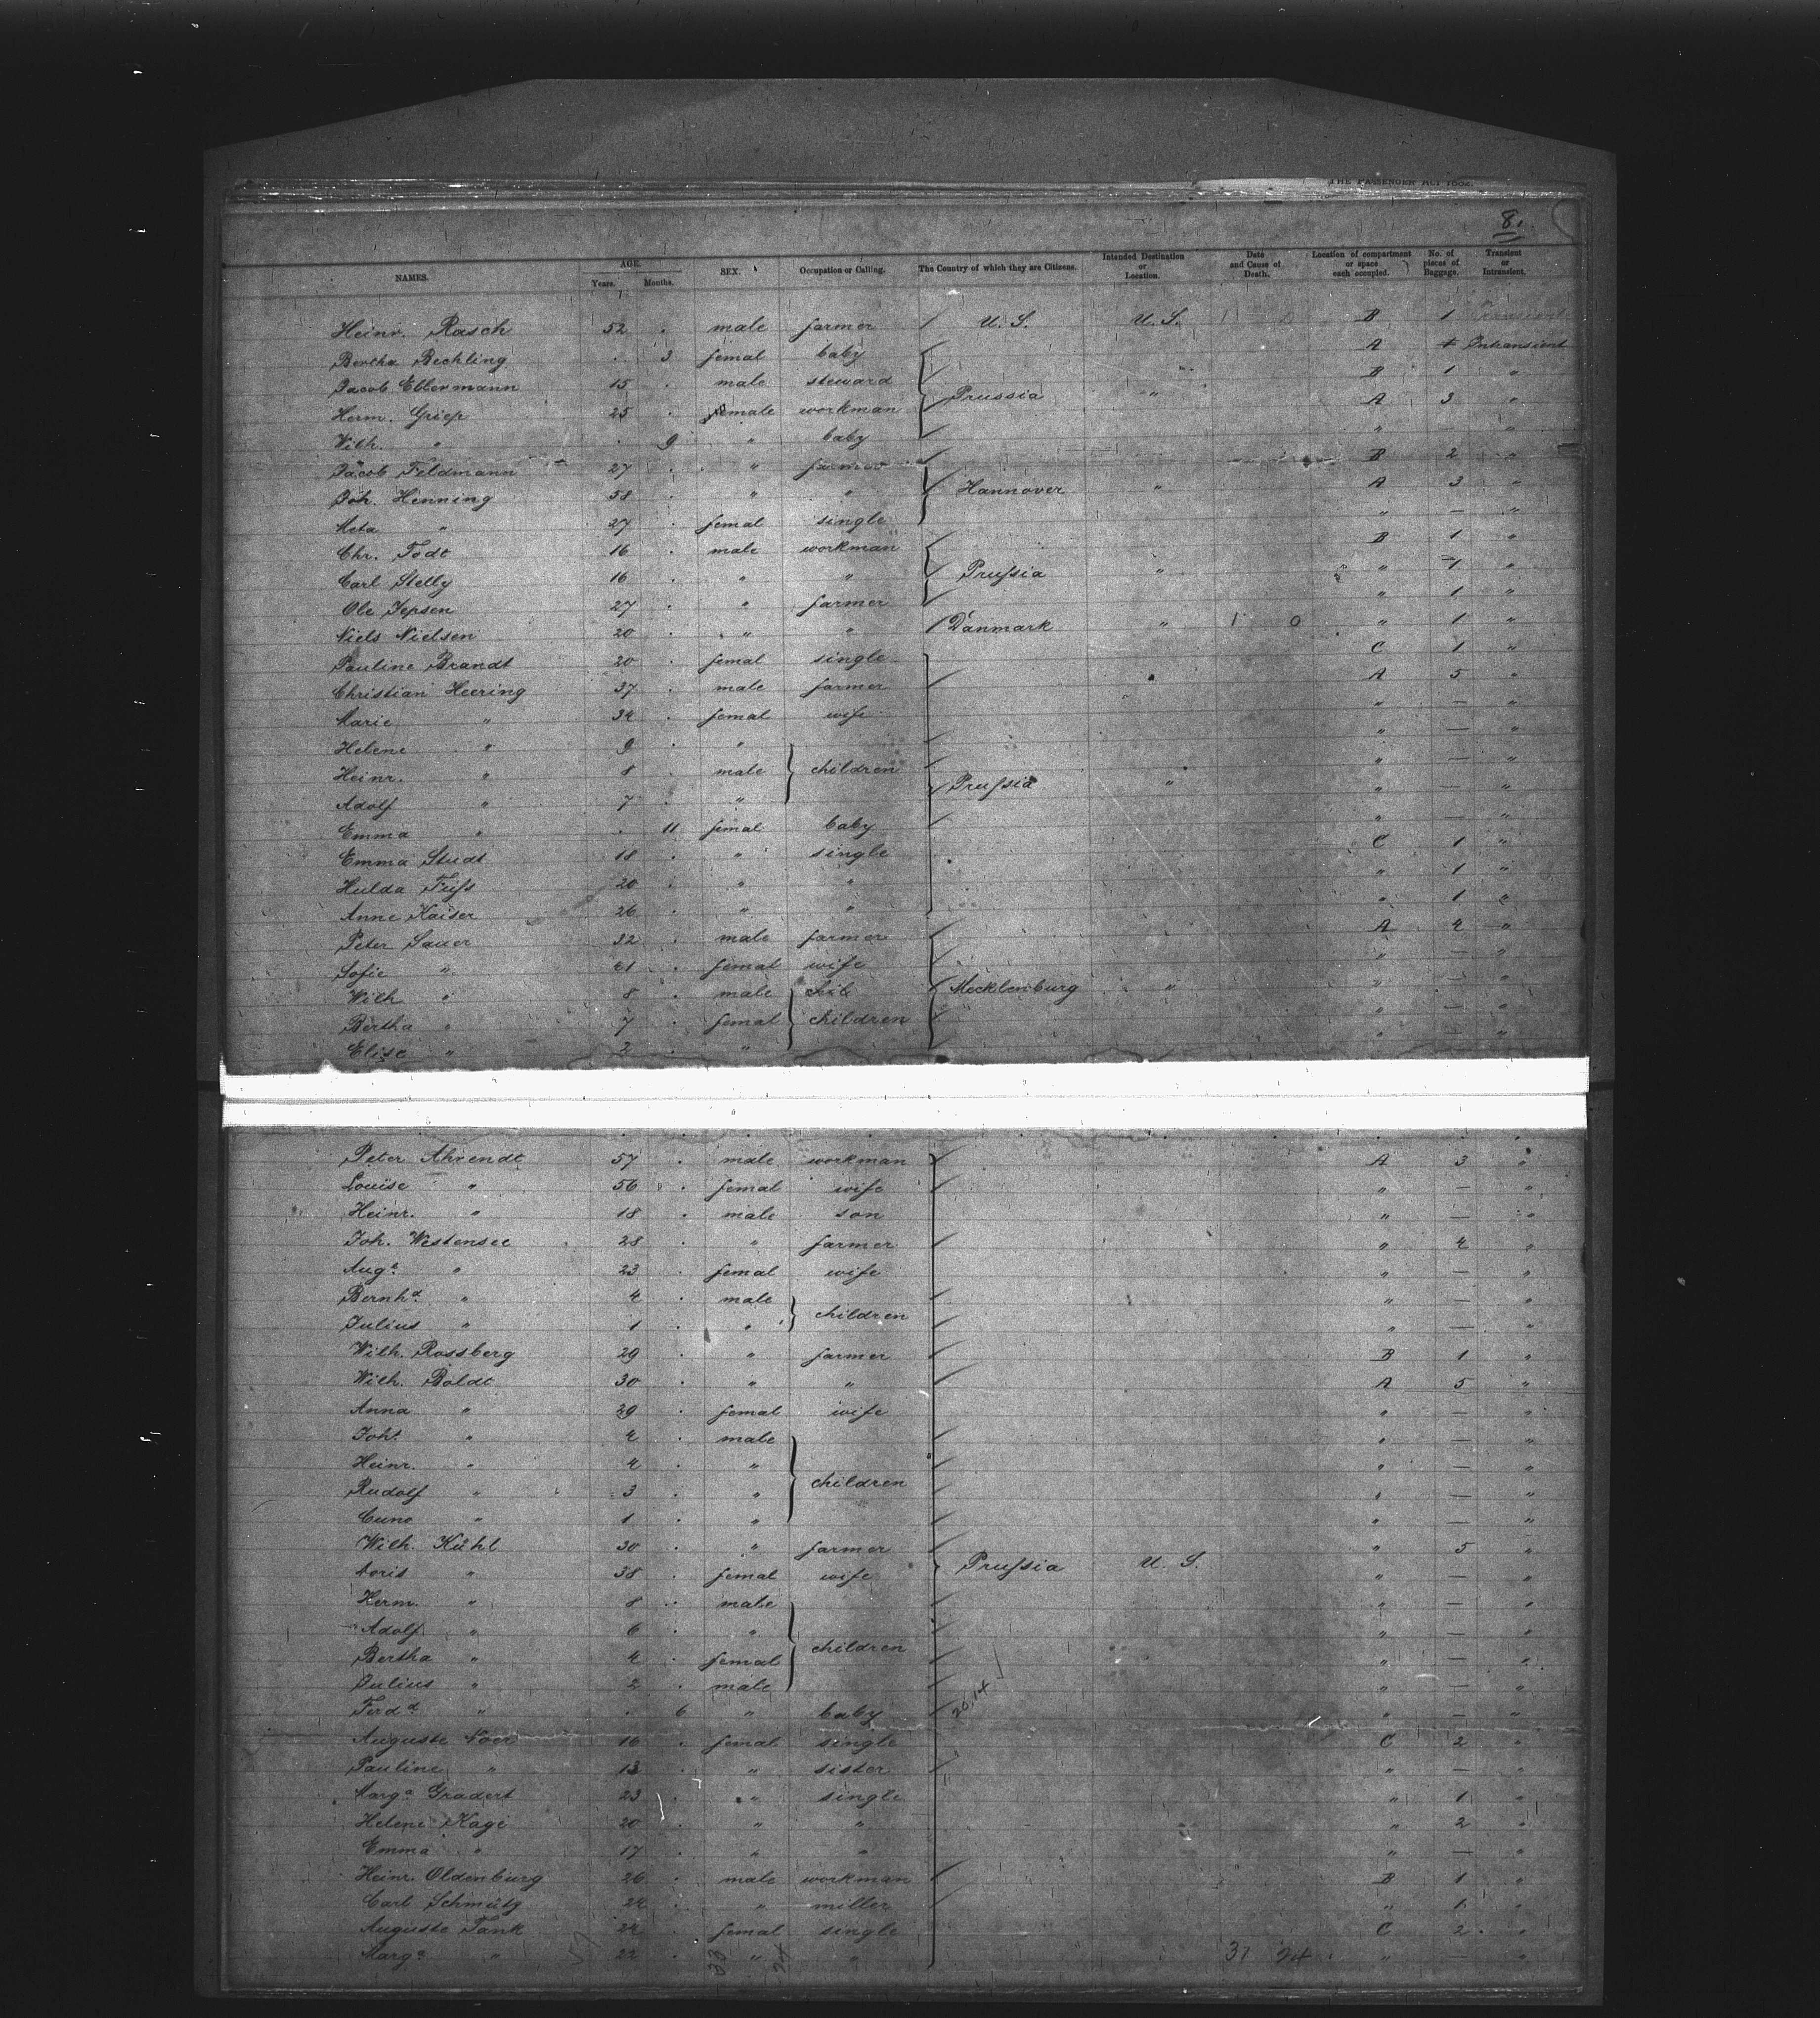 THE PASSENGER ACT 1882.
8.
NAMES. AGE. Years. Months. SEX. Occupation or Calling. The Country of which they are Citizens. Intended Destination or Location. Date and Cause of Death. Location of compartment or space each occupied. No. of pieces of Baggage. Transient or Intransient.
Heinr. Rasch 52 . male farmer U. S. U. S. 1 0 B 1 Transient
Bertha Bechling . 3 femal baby A Intransient
Jacob Ebbermann 15 . male steward B 1 "
Herm. Griep 25 . male workman Prussia " A 3 "
Wilh. " . 9 " baby " — "
Jacob Feldmann 27 . " farmer B 2 "
Joh. Henning 58 . " " Hannover " A 3 "
Meta " 27 . femal single " — "
Chr. Todt 16 . male workman B 1 "
Carl Stelly 16 . " " Prußia " " 1 "
Ole Jepsen 27 . " farmer " 1 "
Niels Nielsen 20 . " " Danmark " 1 0 " 1 "
Pauline Brandt 20 . femal single C 1 "
Christian Heering 37 . male farmer A 5 "
Marie " 34 . femal wife " — "
Helene " 9 . " " — "
Heinr. " 8 . male children " — "
Adolf " 7 . " Prußia " " — "
Emma " . 11 femal baby " — "
Emma Studt 18 . " single C 1 "
Hulda Füß 20 . " " " 1 "
Anne Kaiser 26 . " " " 1 "
Peter Sauer 32 . male farmer A 4 "
Sofie " 41 . femal wife " — "
Wilh " 8 . male Mecklenburg " " — "
Bertha " 7 . femal children " — "
Elise " 2 . " " — "
Peter Ahrendt 57 . male workman A 3 "
Louise " 56 . femal wife " — "
Heinr. " 18 . male son " — "
Joh. Westensee 28 . " farmer " 4 "
Aug.a " 23 . femal wife " — "
Bernhd. " 4 . male " — "
Julius " 1 . " children " — "
Wilh. Rossberg 29 " farmer B 1 "
Wilh. Boldt 30 . " " A 5 "
Anna " 29 . femal wife " — "
Joh. " 4 . male " — "
Heinr. " 4 . " " — "
Rudolf " 3 . " children " — "
Cuno " 1 . " " — "
Wilh. Kühl 30 . " farmer " 5 "
Doris " 38 . femal wife Prußia U. S. " — "
Herm. " 8 . male " — "
Adolf " 6 . " " — "
Bertha " 4 . femal children " — "
Julius " 2 . male " — "
Ferdd. " . 6 " baby " — "
Auguste Noer 16 . femal single C 2 "
Pauline " 13 . " sister " — "
Marga. Gradert 23 " single " 1 "
Helene Kage 20 . " " " 2 "
Emma " 17 . " " " — "
Heinr. Oldenburg 26 . male workman B 1 "
Carl Schmütz 24 . " miller " 1 "
Auguste Tank 24 . femal single C 2 "
Marga. " 22 . " " 37 24 " — "